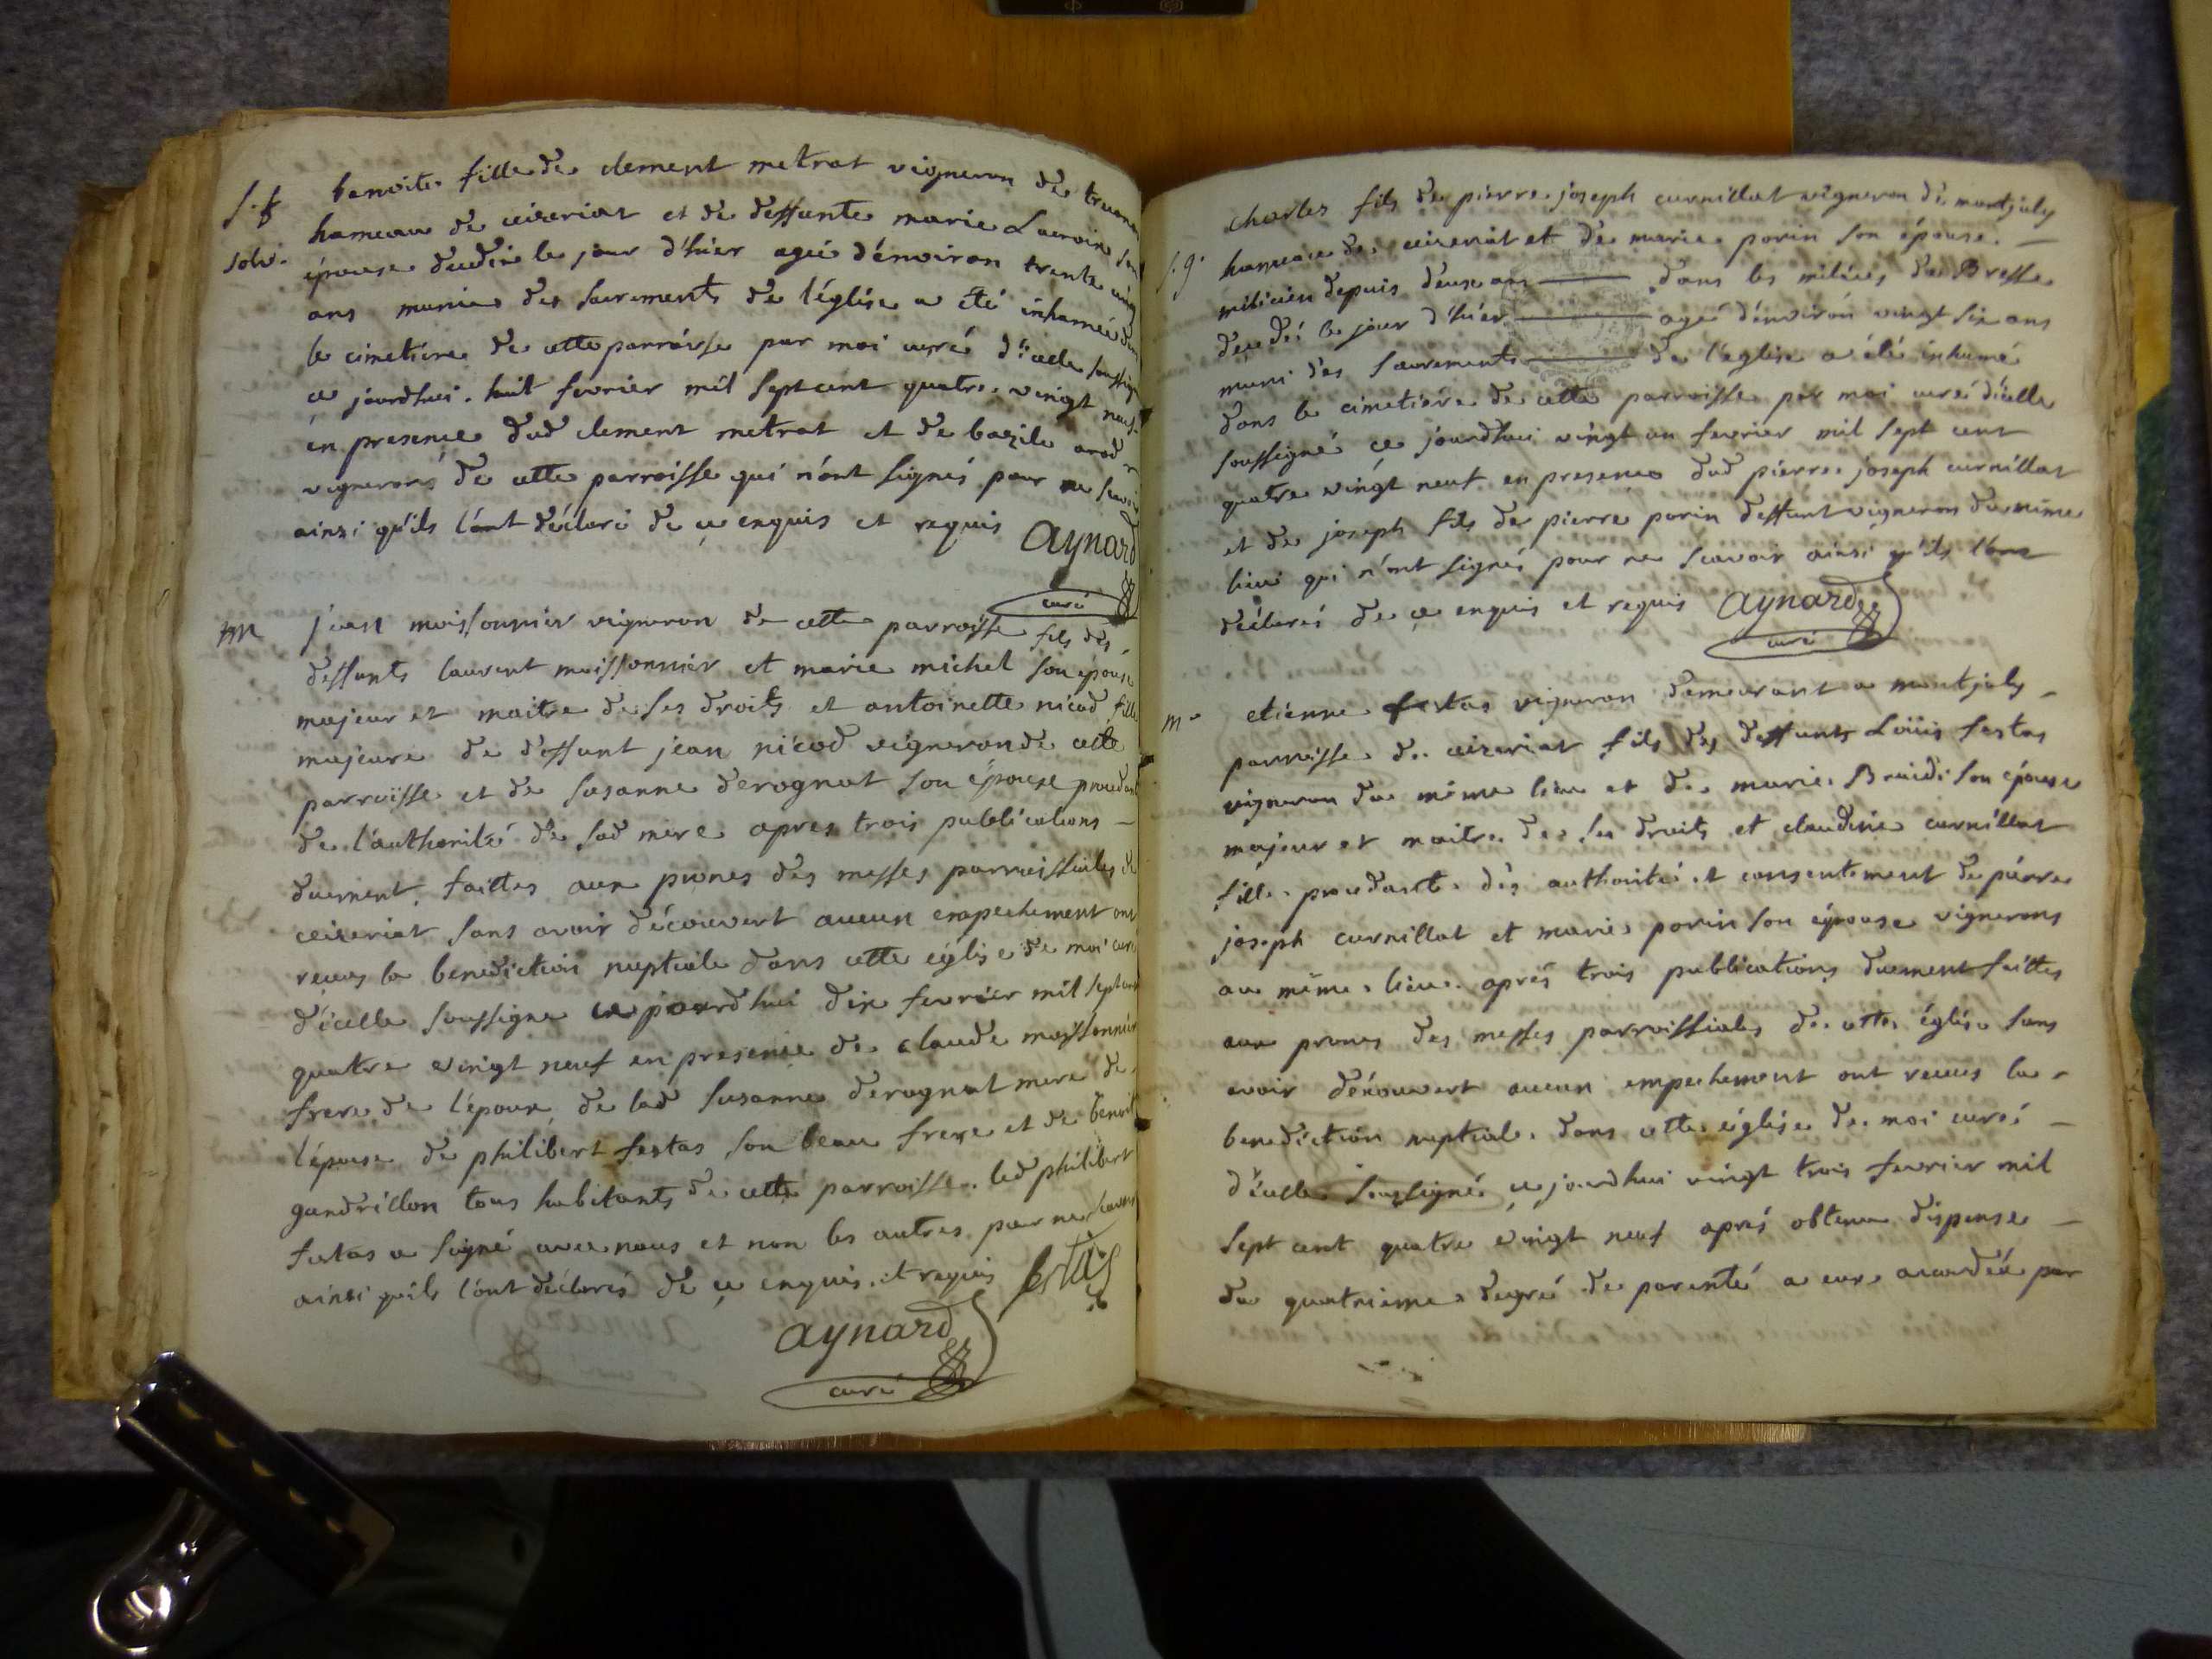 S. f benoite fille de clement metrat vigneron de
solv. hameau de ceizeriat et de deffunte marie Lacroix son
épouse decédée le jour d'hier agée d'environ trente cinq
ans munie des sacrements de l'église a été inhumée dans
le cimetiere de cette parroisse par moi curé d'icelle soussigné
ce jourdhui huit fevrier mil sept cent quatre vingt neuf
en presence dud clement metrat et de bazile
vignerons de cette parroisse qui n'ont signés pour ne scavoir
ainsi qu'ils l'ont déclaré de ce enquis et requis Aynard
curé
m jean moissonnier vigneron de cette parroisse fils des
deffunts laurent moissonnier et marie michel son épouse
majeur et maitre de ses droits et antoinette nicod fille
majeure de deffunt jean nicod vigneron de cette
parroisse et de susanne derognat son épouse procedant
de l'authorité de sad mere apres trois publications —
duement faittes aux prones des messes parroissiales de
ceizeriat sans avoir découvert aucun empechement ont
recus la benediction nuptiale dans cette église de moi curé
d'icelle soussigné ce jourdhui dix fevrier mil sept cent
quatre vingt neuf en presence de claude moissonnier
frere de l'époux, de lad susanne derognat mere de
l'épouse de philibert festas son beau frere et de benoit
gandrillon tous habitants de cette parroisse. led philibert
festas a signé avec nous et non les autres pour ne scavoir
ainsi qu'ils l'ont déclarés de ce enquis et requis festas
aynard
curé
charles fils de pierre joseph curnillat vigneron de montjuly
S. g. hameau de ceizeriat et de marie porin son épouse. —
milicien depuis deux ans — dans les milices de Bresse
decedé le jour d'hier — agé d'environ vingt six ans
muni des sacrements — de l'église a été inhumé
dans le cimetiere de cette parroisse par moi curé d'icelle
soussigné ce jourdhui vingt un fevrier mil sept cent
quatre vingt neuf en presence dud pierre joseph curnillat
et de joseph fils de pierre porin deffunt vigneron du même
lieu qui n'ont signés pour ne scavoir ainsi qu'ils l'ont
déclarés de ce enquis et requis Aynard
curé
m etienne festas vigneron demeurant a montjuly -
parroisse de ceizeriat fils des deffunts Loüis festas
vigneron du même lieu et de marie son épouse
majeur et maitre de ses droits et claudine curnillat
fille procedante des authorité et consentement de pierre
joseph curnillat et marie porin son épouse vignerons
au même lieu. aprés trois publications duement faittes
aux prones des messes parroissiales de cette église sans
avoir découvert aucun empechement ont recus la -
benediction nuptiale dans cette église de moi curé —
d'icelle soussigné ce jourdhui vingt trois fevrier mil
sept cent quatre vingt neuf aprés obtenu dispense —
du quatrieme degré de parenté a eux accordée par